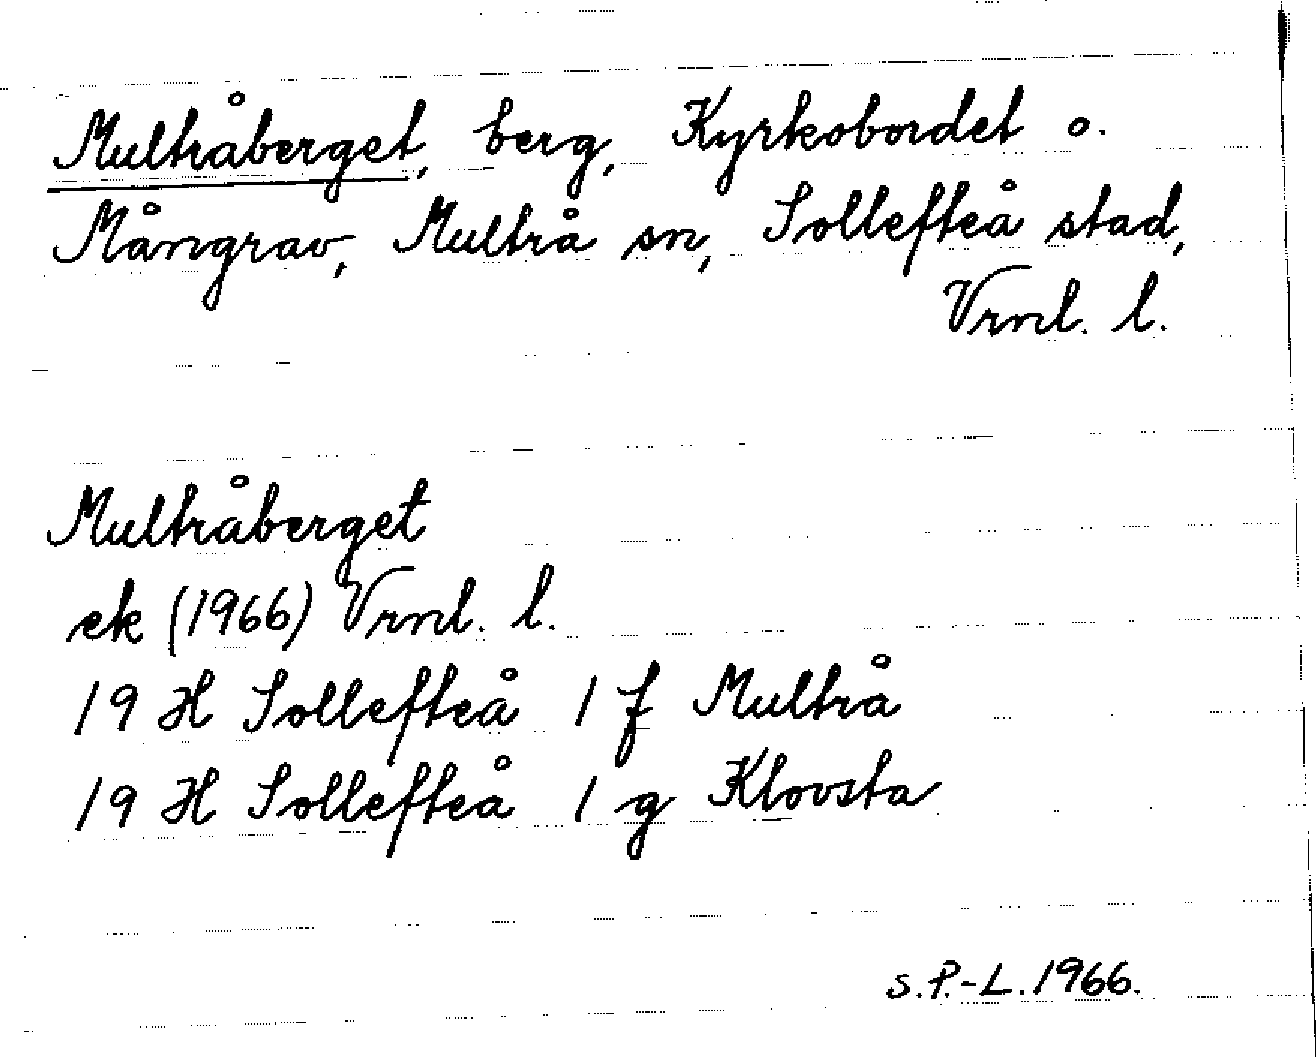 Multråberget, berg, Kyrkobordet o.
Mångrav, Multrå sn, Sollefteå stad,
Vrnl. l.
Multråberget
ek (1966) Vrnl. l.
19 H Sollefteå 1 f Multrå
19 H Sollefteå 1 g Klovsta
s.P.-L. 1966.